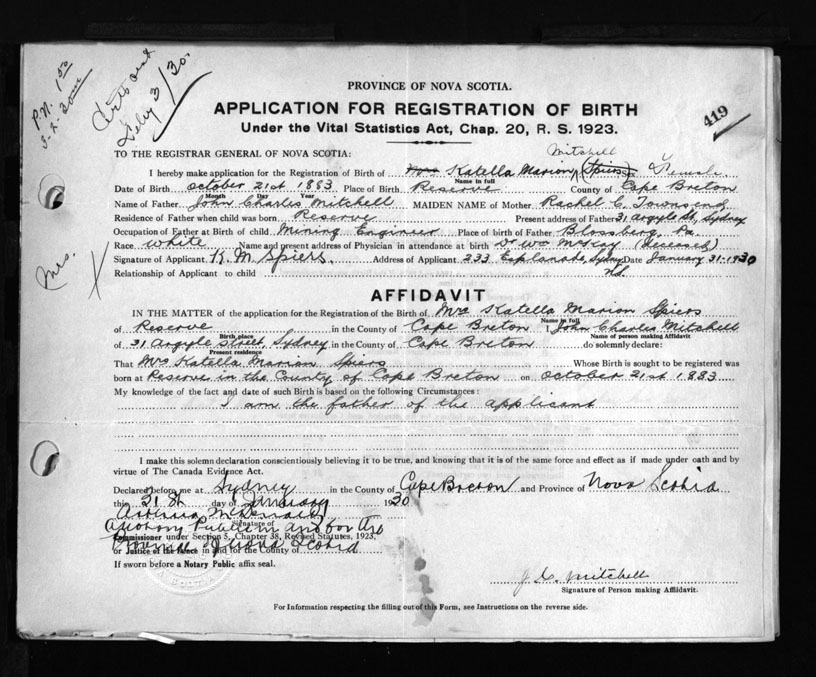 P.N. 1.50
3-2-30
Feby 3/30.
419
PROVINCE OF NOVA SCOTIA.
APPLICATION FOR REGISTRATION OF BIRTH
Under the Vital Statistics Act, Chap. 20, R. S. 1923.
TO THE REGISTRAR GENERAL OF NOVA SCOTIA:
Mitchell
I hereby make application for the Registration of Birth of Mrs Katella Marion (Spiers) Female
Name in full
Date of Birth October 21st 1883 Place of Birth Reserve County of Cape Breton
Month Day Year
Name of Father John Charles Mitchell MAIDEN NAME of Mother Rachel C. Townsend
Residence of Father when child was born Reserve Present address of Father 31 Argyle St, Sydney
Occupation of Father at Birth of child Mining Engineer Place of birth of Father Blossberg, Pa.
Race white Name and present address of Physician in attendance at birth Dr Wm McKay (Deceased)
Signature of Applicant K. M. Spiers. Address of Applicant 233 Esplanade, Sydney Date January 31-1930
N.S.
Relationship of Applicant to child
Mrs. X
AFFIDAVIT
IN THE MATTER of the application for the Registration of the Birth of Mrs Katella Marion Spiers
Name in full
of Reserve in the County of Cape Breton I John Charles Mitchell
Birth place Name of person making Affidavit
of 31 Argyle Street, Sydney in the County of Cape Breton do solemnly declare:
Present residence
That Mrs Katella Marion Spiers Whose Birth is sought to be registered was
born at Reserve in the County of Cape Breton on October 21st 1883
My knowledge of the fact and date of such Birth is based on the following Circumstances:
I am the father of the applicant
I make this solemn declaration conscientiously believing it to be true, and knowing that it is of the same force and effect as if made under oath and by
virtue of The Canada Evidence Act.
Declared before me at Sydney in the County of Cape Breton and Province of Nova Scotia
this 31st day of January 1930
Signature of
A Notary Public in and for the
Commissioner under Section 5, Chapter 38, Revised Statutes, 1923,
Province of Nova Scotia
or Justice of the Peace in and for the County of
If sworn before a Notary Public affix seal.
J. C. Mitchell
Signature of Person making Affidavit.
For Information respecting the filling out of this Form, see Instructions on the reverse side.